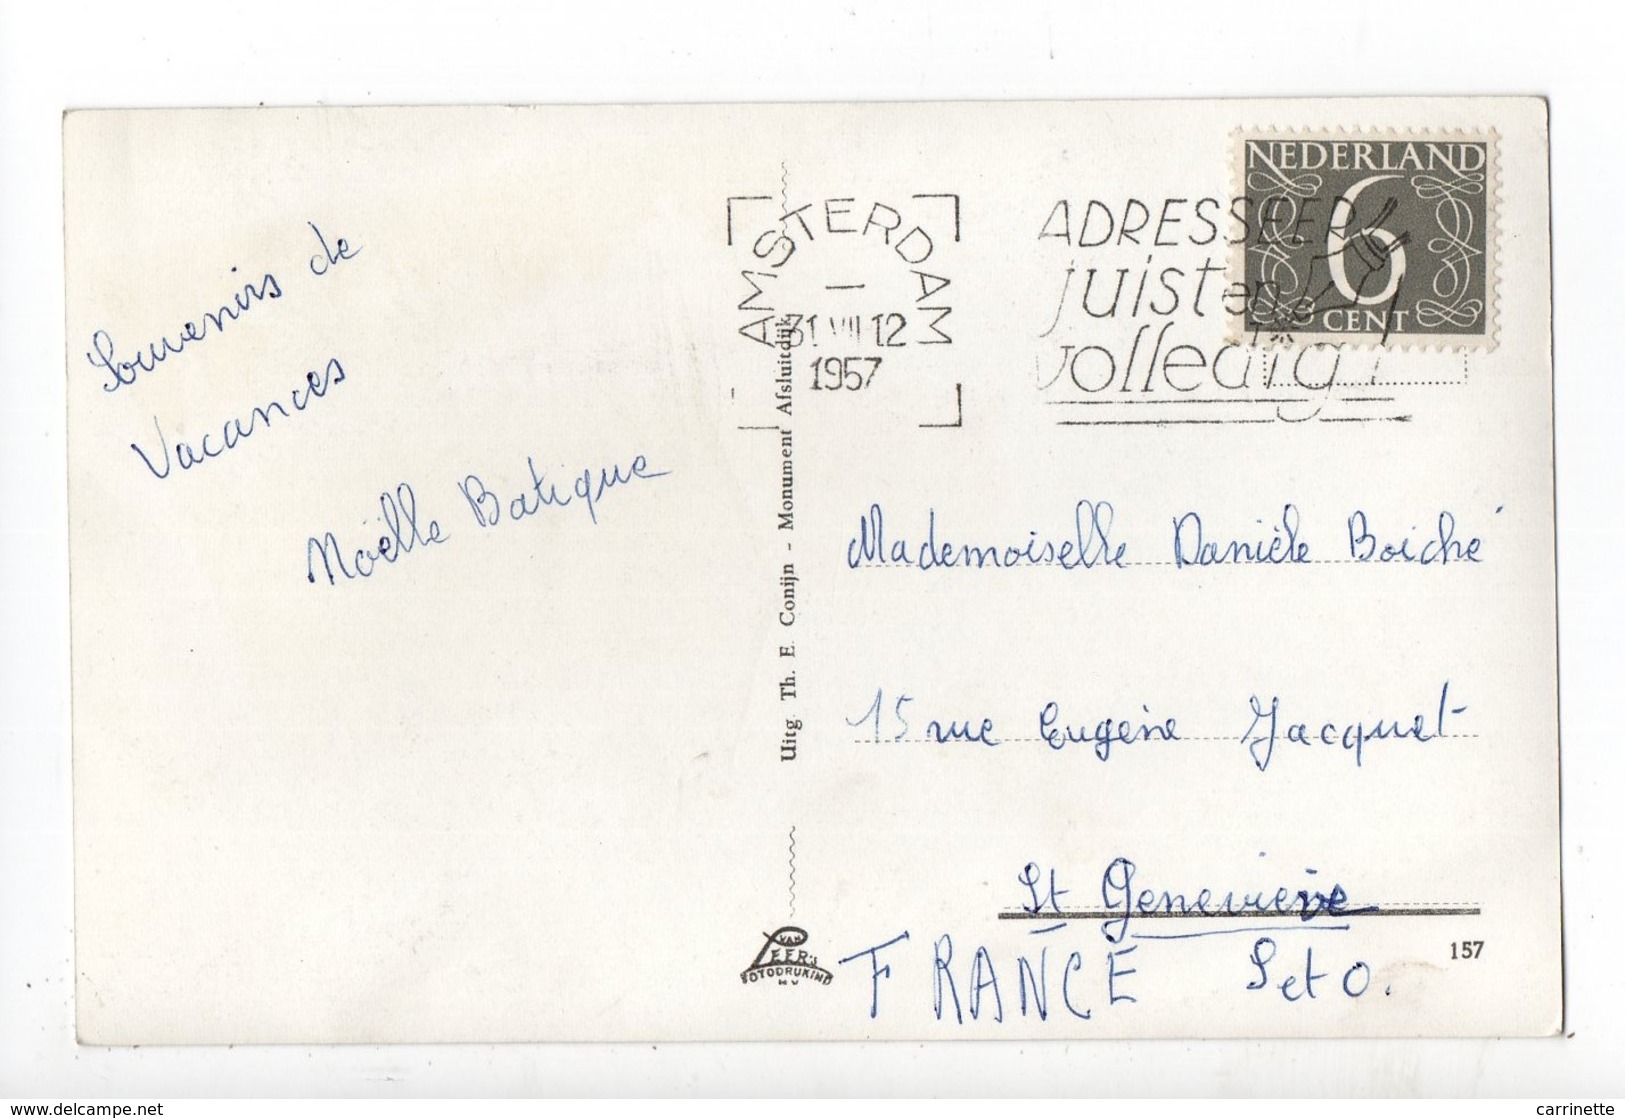 Souvenirs de
Vacances
Noëlle Batique
Uitg Th. E. Conijn - Monument Afsluitdijk
VAN
LEER'S
FOTODRUKIND
N V
AMSTERDAM
31 VII 12
1957
ADRESSEER
juist en
volledig!
NEDERLAND
6
CENT
Mademoiselle Danièle Boiché
15 rue Eugène Jacquet
St Geneviève
FRANCE S et O.
157
delcampe.net
carrinette